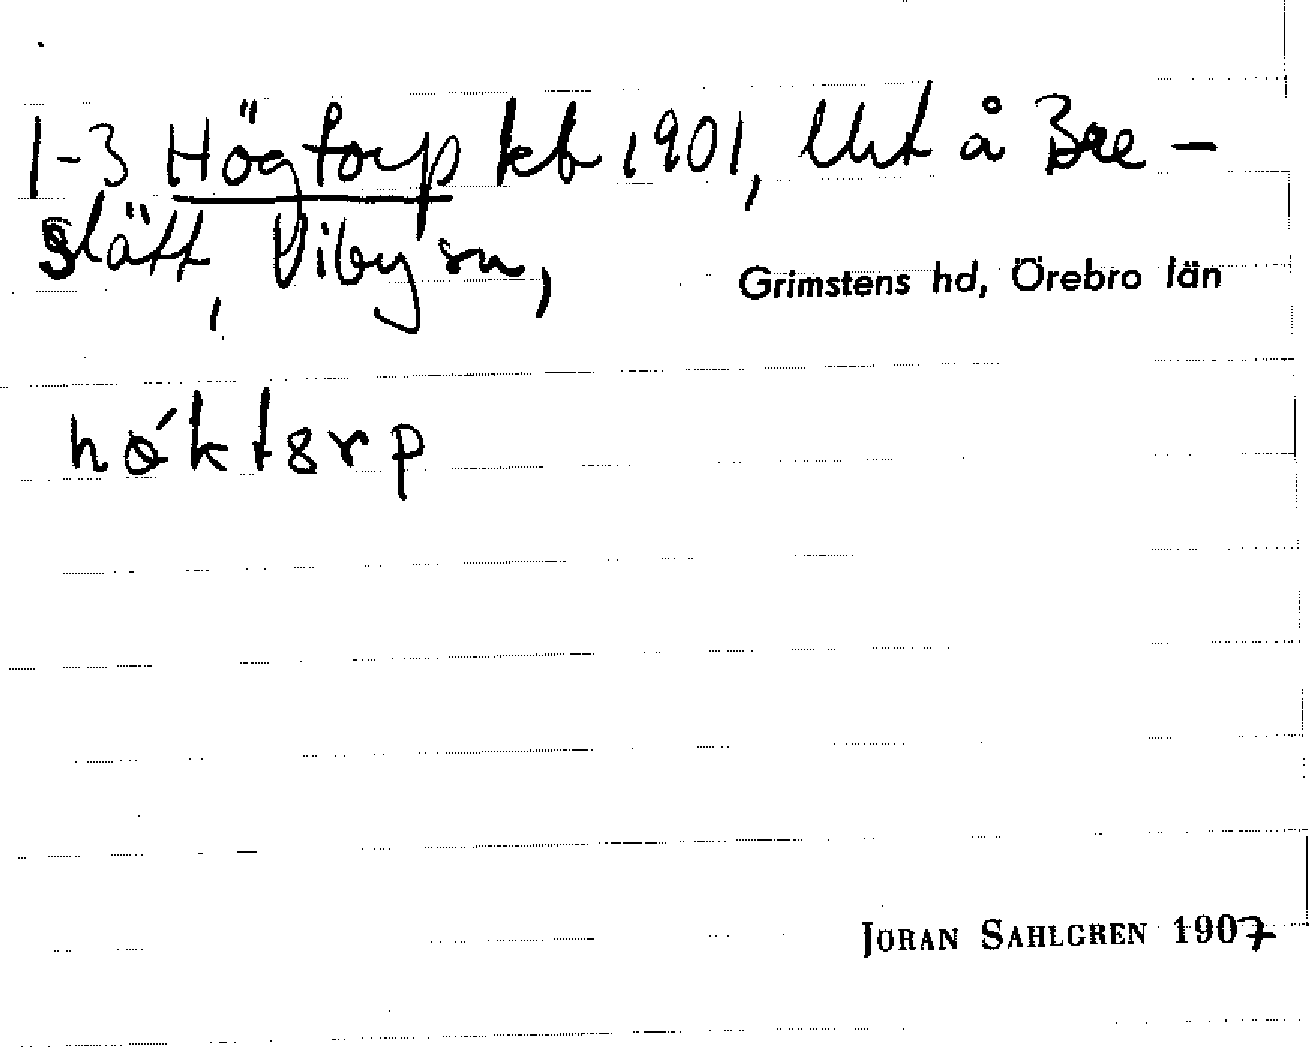 1-3 Högtorp kb 1901, Uht å Bre-
slätt, Viby sn,
Grimstens hd, Örebro län
hǿktørp
JÖRAN SAHLGREN 1907